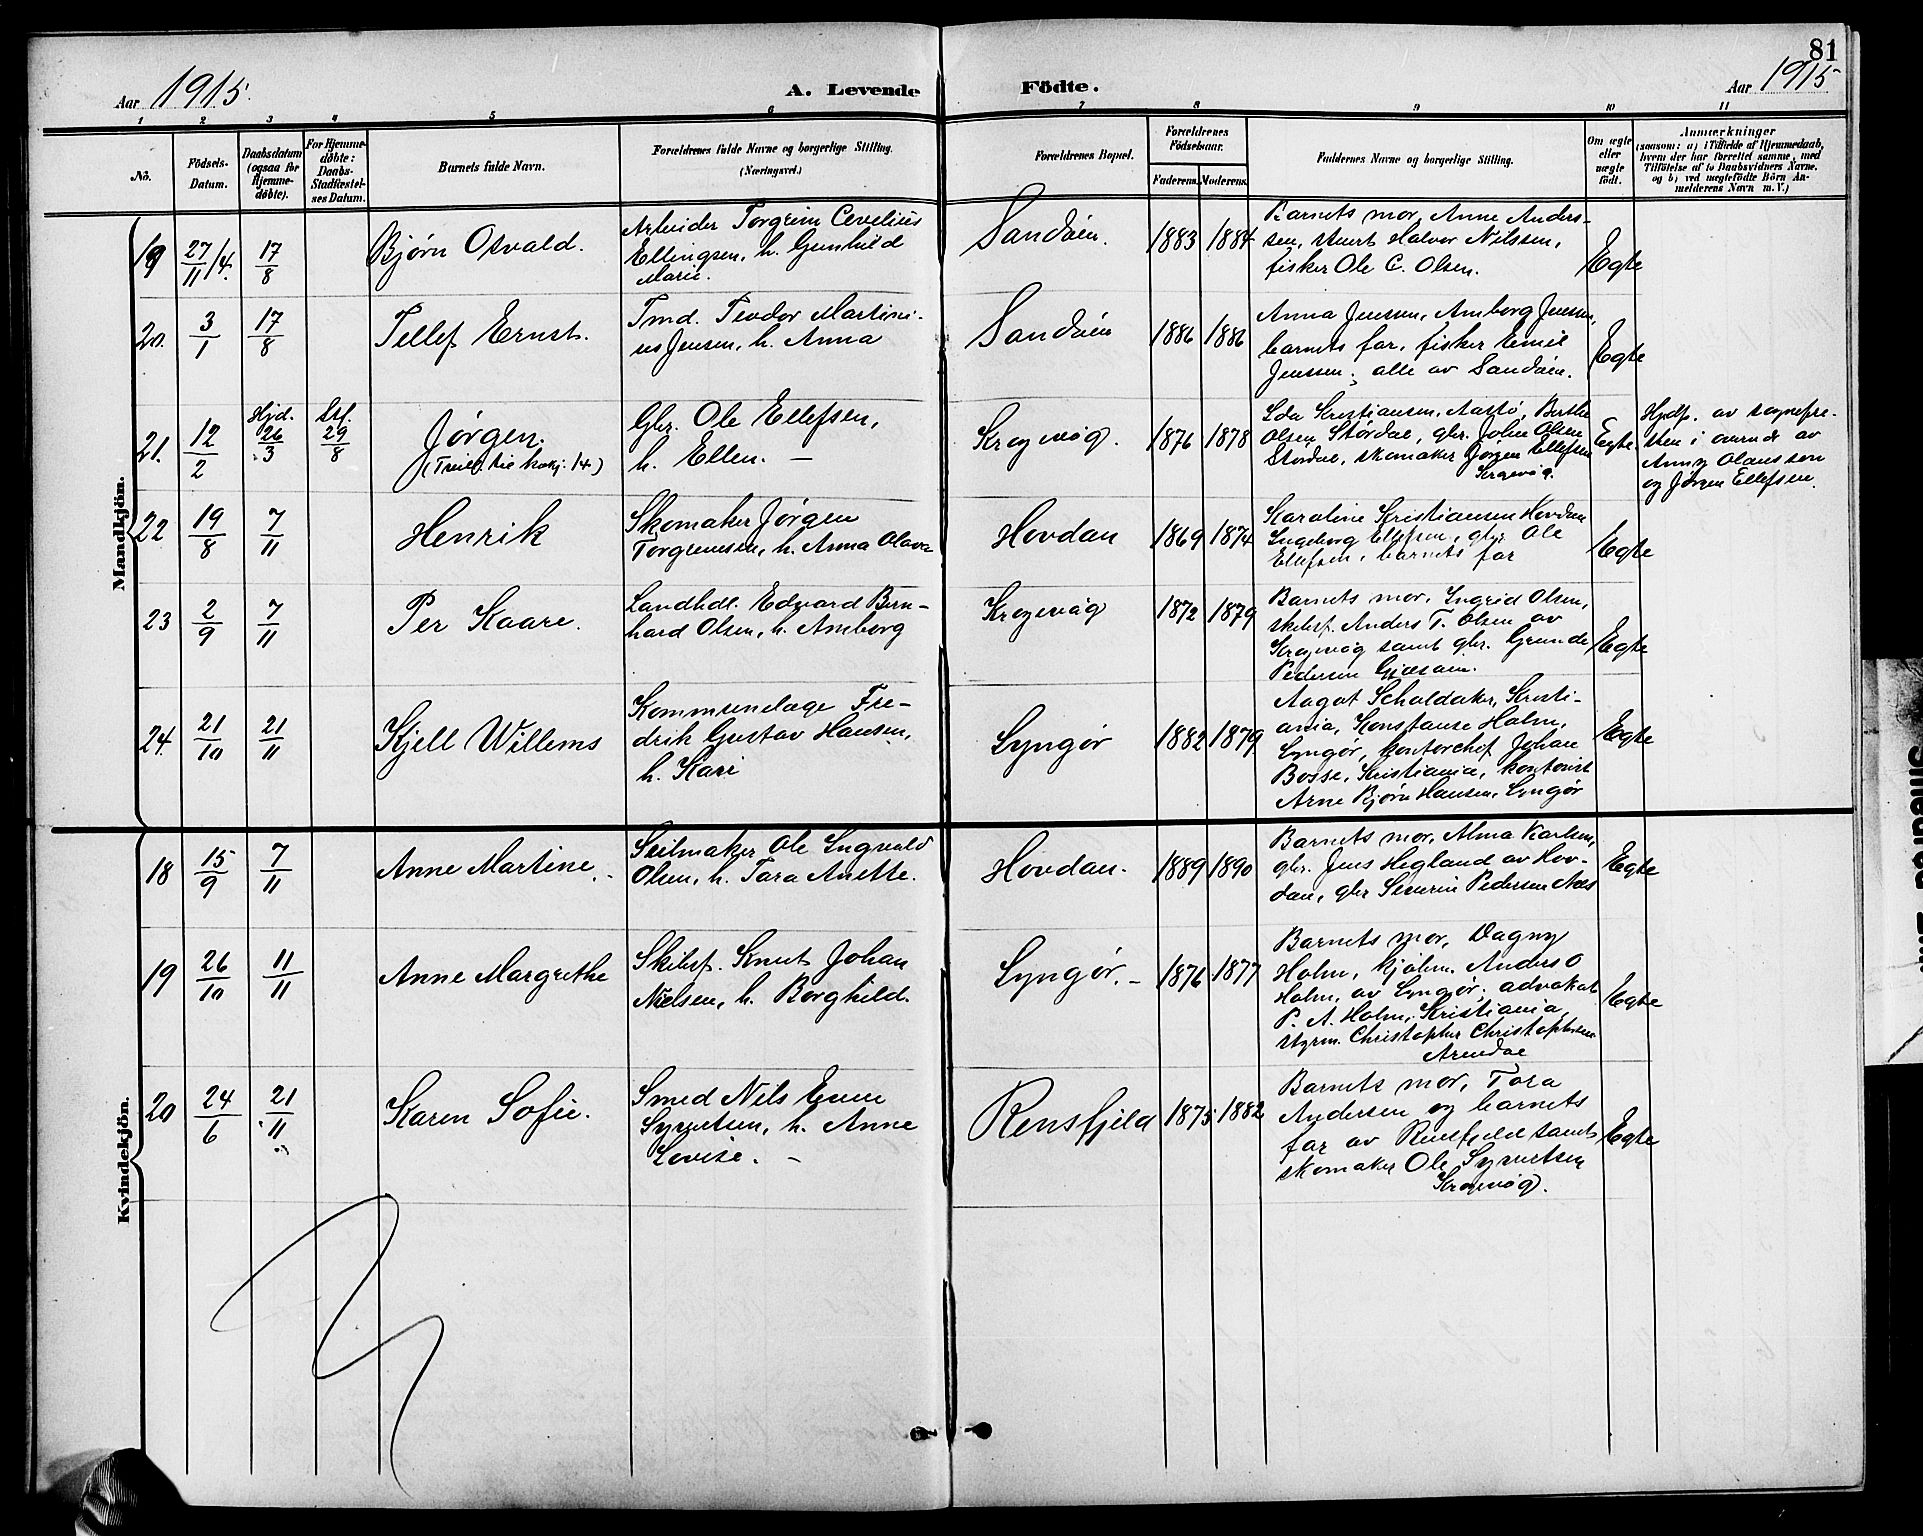 81
Aar 1915.
A. Levende Födte.
Aar 1915
1 2 3 4 5 6 7 8 9 10 11
No.
Födsels-
Datum.
Daabsdatum
(ogsaa for
Hjemme-
döbte).
For Hjemme-
döbte:
Daabs-
Stadfæstel-
ses Datum.
Barnets fulde Navn.
Forældrenes fulde Navne og borgerlige Stilling.
(Næringsvei.)
Forældrenes Bopæl.
Forældrenes
Födselsaar.
Faderens. Moderens.
Faddernes Navne og borgerlige Stilling.
Om ægte
eller
uægte
födt.
Anmærkninger
(saasom: a) i Tilfælde af Hjemmedaab,
hvem der har forrettet samme, med
Tilföielse af to Daabsvidners Navne.
og b) ved uægtefödte Börn An-
melderens Navn m. V.)
Mandkjön.
19 27/11 14. 17/8
Bjørn Osvald.
Arbeider Torgrim Cevelius
Ellingsen, h. Gunhild
Marie.
Sandøen. 1883 1884
Barnets mor, Anne Anders-
sen, stuert Halvor Nilssen,
fisker Ole C. Olsen.
Egte
20. 3/1 17/8
Tellef Ernst.
Tmd. Teodor Martini-
us Jensen, h. Anna
Sandøen 1886 1886
Anna Jensen, Amborg Jensen,
barnets far, fisker Emil
Jenssen, alle av Sandøen.
Egte
21. 12/2
Hjd.
26/3
Stf.
29/8
Jørgen.
(Tvill. til kvkj. 14)
Gbr. Ole Ellefsen,
h. Ellen. —
Krogevåg. 1876 1878
Ida Kristiansen, Aastø, Berthe
Olsen Stordal, gbr. John Olsen
Stordal, skomaker Jørgen Ellefsen
Krogevåg.
Egte
Hjdp. av sognepre-
sten i overvær av
Anny Olaussen
og Jørgen Ellefsen.
22 19/8 7/11
Henrik
Skomaker Jørgen
Torgrimsen, h. Anna Olava
Hovdan 1869 1874
Karoline Kristiansen Hovdan
Ingeborg Ellefsen, gbr. Ole
Ellefsen, barnets far
Egte
23 2/9 7/11
Per Kaare.
Landhdl. Edvard Bern-
hard Olsen, h. Amborg
Krogevåg 1872 1879
Barnets mor, Ingrid Olsen,
skibsf. Anders T. Olsen av
Krogevåg samt gbr. Grunde
Pedersen
Egte
24. 21/10 21/11
Kjell Willems
Kommunelæge Fre-
drik Gustav Hansen,
h. Kari
Lyngør 1882 1879
Aagot Schaldaker, Kristi-
ania, Konstanse Holm,
Lyngør, kontorchef Johan
Bosse, Kristiania, kontorist
Arne Bjørn Hansen, Lyngør
Egte
Kvindekjön.
18 15/9 7/11
Anne Martine.
Seilmaker Ole Ingvald
Olsen, h. Tara Anette.
Hovdan. 1889 1890
Barnets mor, Alma Karlsen,
gbr. Jens Hegland av Hov-
dan, gbr Severin Pedersen Næs
Egte
19 26/10 11/11
Anne Margrethe
Skibsf. Knut Johan
Nielsen, h. Borghild.
Lyngør. – 1876 1877
Barnets mor, Dagny
Holm, kjøbm. Anders O
Holm, av Lyngør, advokat
P. A. Holm, Kristiania,
styrm. Christopher Christophersen
Arendal
Egte
20 24/6 21/11
Karen Sofie.
Smed Nils Enum
Syvertsen, h. Anne
Lovise. –
Rensfjeld 1875 1882
Barnets mor, Tora
Andersen og barnets
far av Rensfjeld samt
skomaker Ole Syvertsen
Krogevåg.
Egte